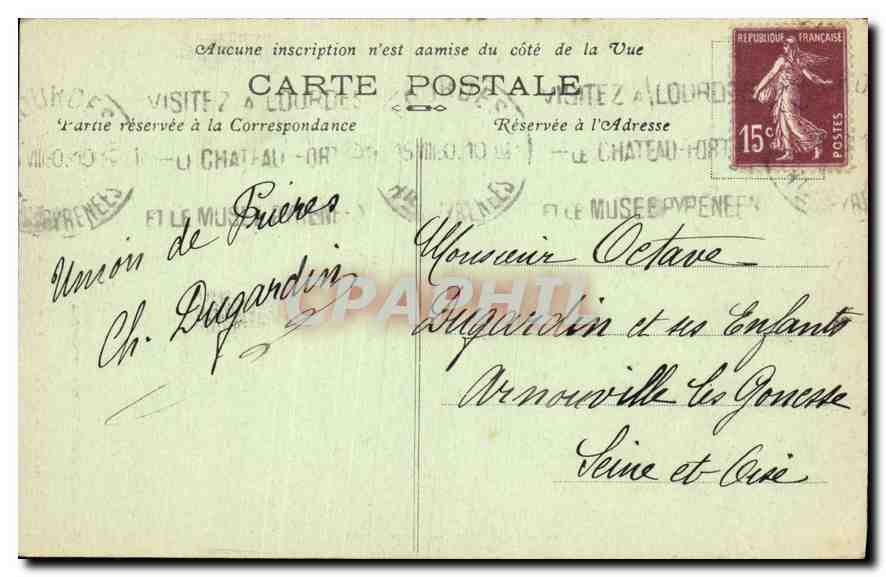 Aucune inscription n'est admise du côté de la Vue
CARTE POSTALE
Partie réservée à la Correspondance
Réservée à l'Adresse
REPUBLIQUE FRANÇAISE
15c
POSTES
VISITEZ A LOURDES
LE CHATEAU-FORT
ET LE MUSEE PYRENEEN
VISITEZ A LOURDES
LE CHATEAU-FORT
ET LE MUSEE PYRENEEN
PYRENEES
PYRENEES
Union de Prières
Ch. Dugardin
Monsieur Octave
Dugardin et ses Enfants
Arnouville les Gonesse
Seine et Oise
CPAPHIL